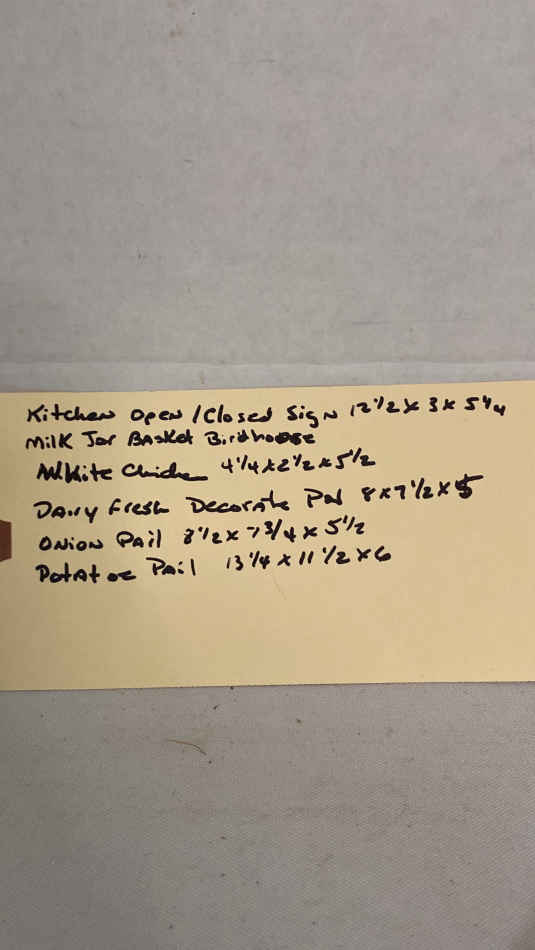 Kitchen open / Closed Sign 12 1/2 x 3 x 5 1/4
Milk Jar Basket Birdhouse
White Chicken 4 1/4 x 2 1/2 x 5 1/2
Dairy Fresh Decorate 8 x 7 1/2 x 5
Onion Pail 8 1/2 x 7 3/4 x 5 1/2
Potatoe Pail 13 1/4 x 11 1/2 x 6